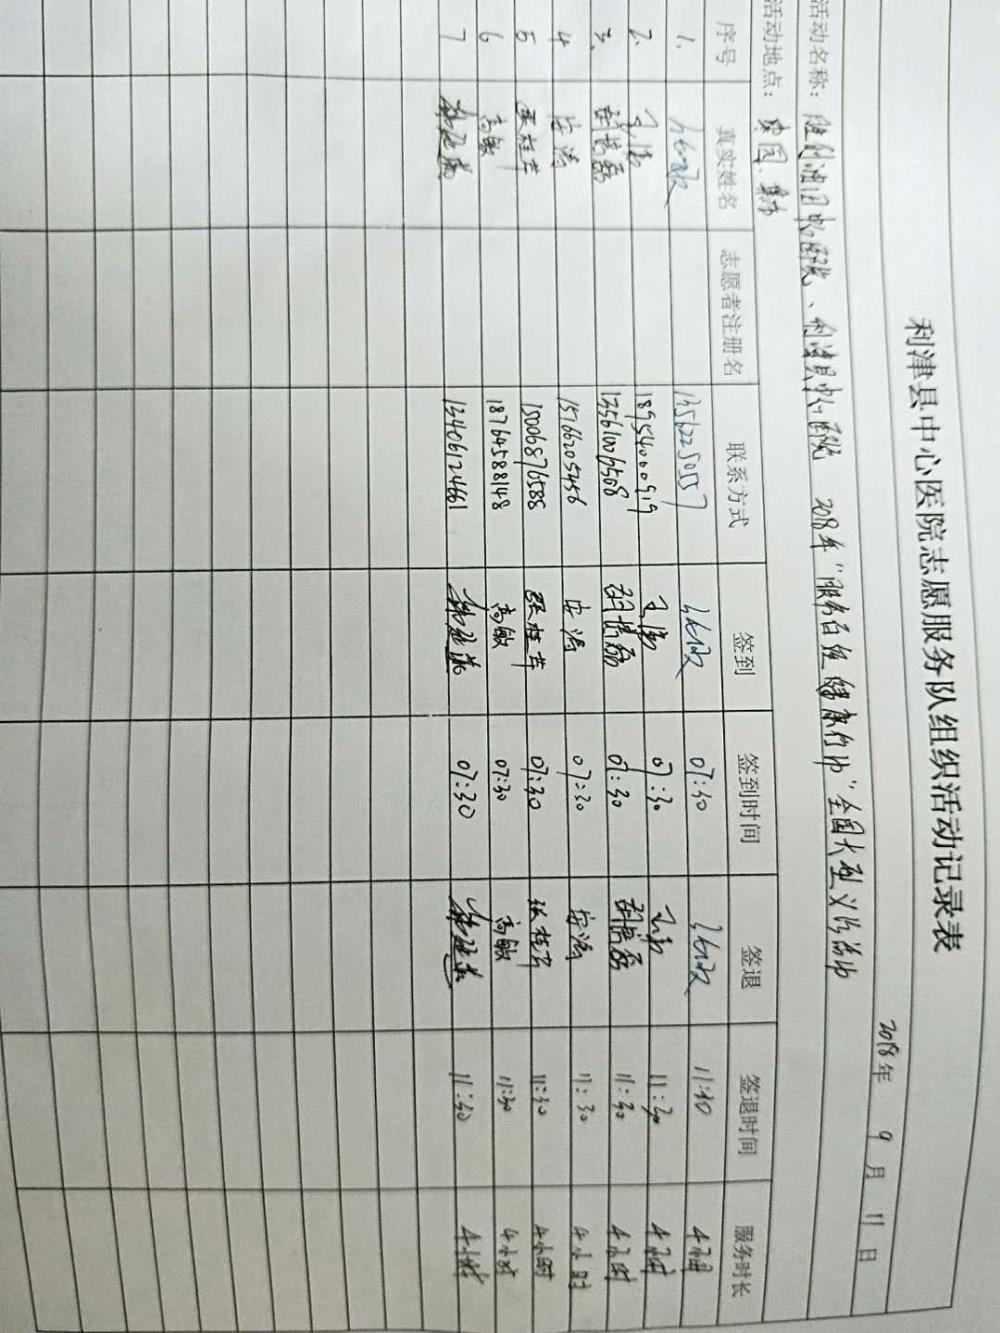 利津县中心医院志愿服务队组织活动记录表
2018年 9月 11日
活动名称：胜利油田中心医院、利津县中心医院 2018年"服务百姓健康行动"全国大型义诊活动
活动地点：
序号 真实姓名 志愿者注册名 联系方式 签到 签到时间 签退 签退时间 服务时长
1. 13562250557 07:30 11:30 4小时
2. 18954000919 07:30 11:30 4小时
3. 13561009508 07:30 11:30 4小时
4 安涛 15766205456 安涛 07:30 安涛 11:30 4小时
5 张桂芹 15006876588 张桂芹 07:30 张桂芹 11:30 4小时
6 高敏 18764588148 高敏 07:30 高敏 11:30 4小时
7 13406124661 07:30 11:30 4小时